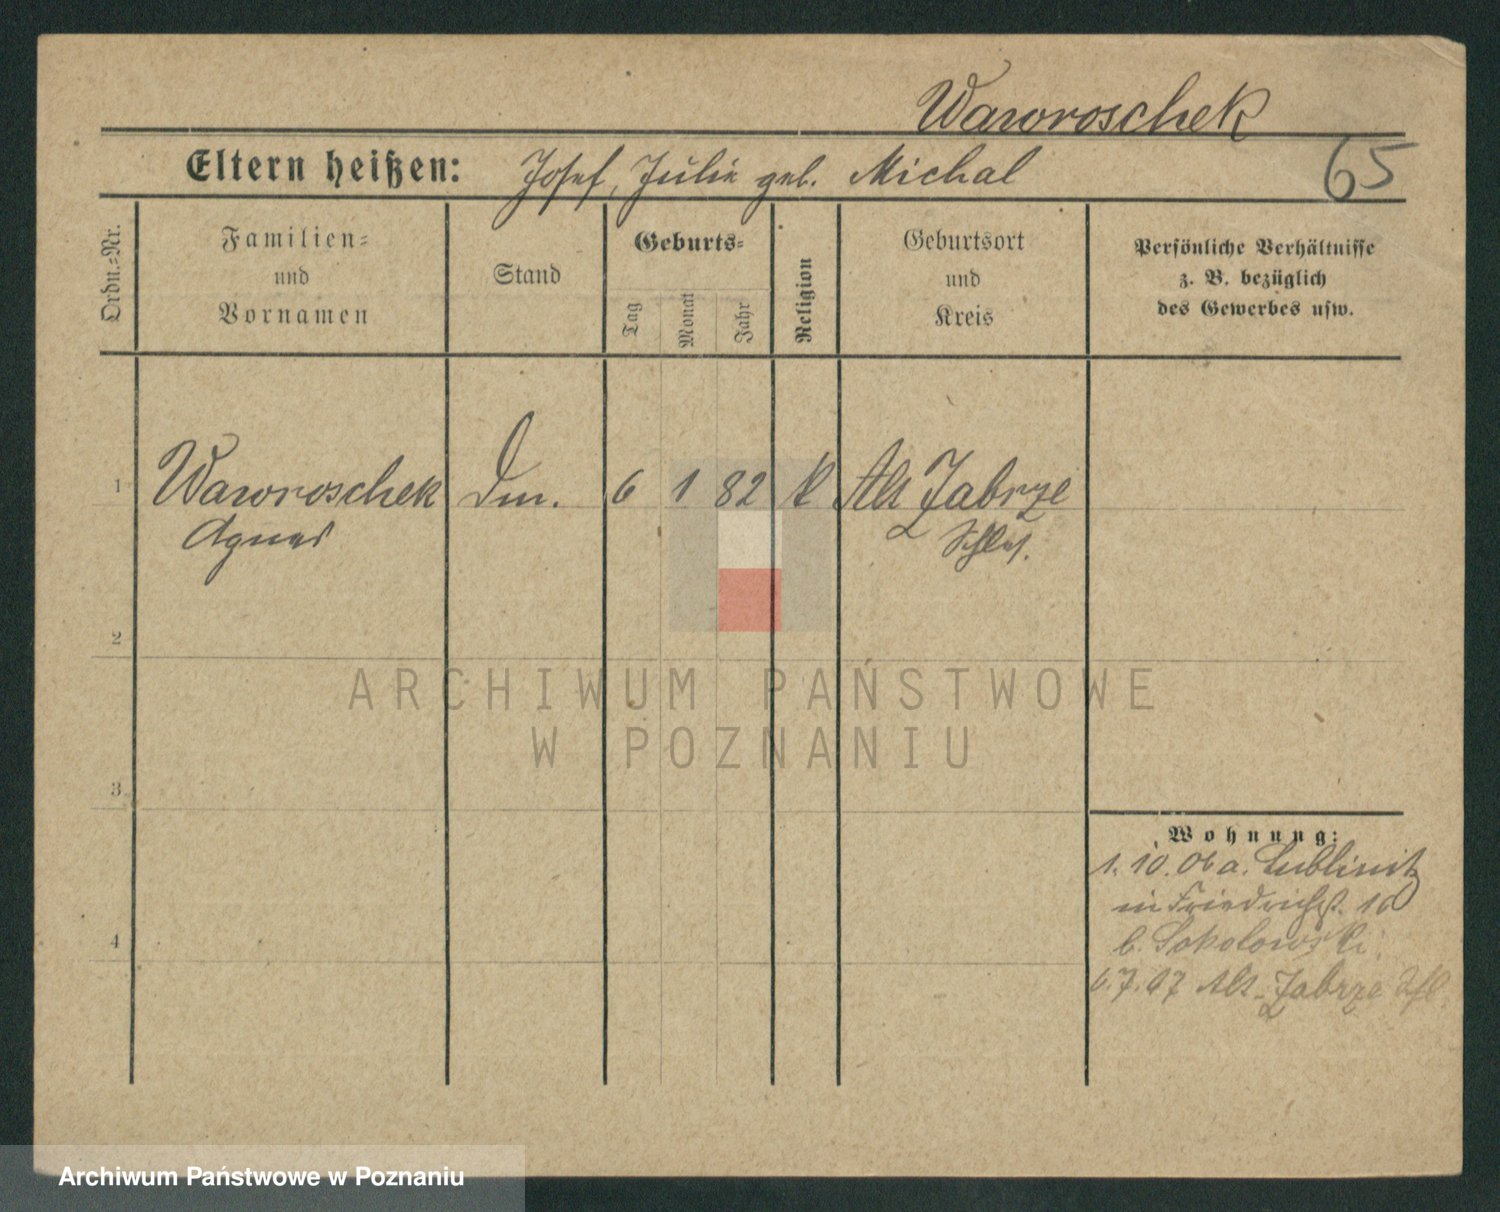 Waworoschek
Eltern heißen: Josef, Julie geb. Michal
65
Ordn.-Nr.
Familien-
und
Vornamen
Stand
Geburts-
Tag
Monat
Jahr
Religion
Geburtsort
und
Kreis
Persönliche Verhältnisse
z. B. bezüglich
des Gewerbes usw.
1 Waworoschek 6 1 82 k Alt Zabrze
Agnes Schles.
2
3
4
Wohnung:
1. 10. 06 a. Lublinitz
in Friedrichst. 10
b. Sokolowski
6.7.07 Alt-Zabrze
ARCHIWUM PAŃSTWOWE
W POZNANIU
Archiwum Państwowe w Poznaniu